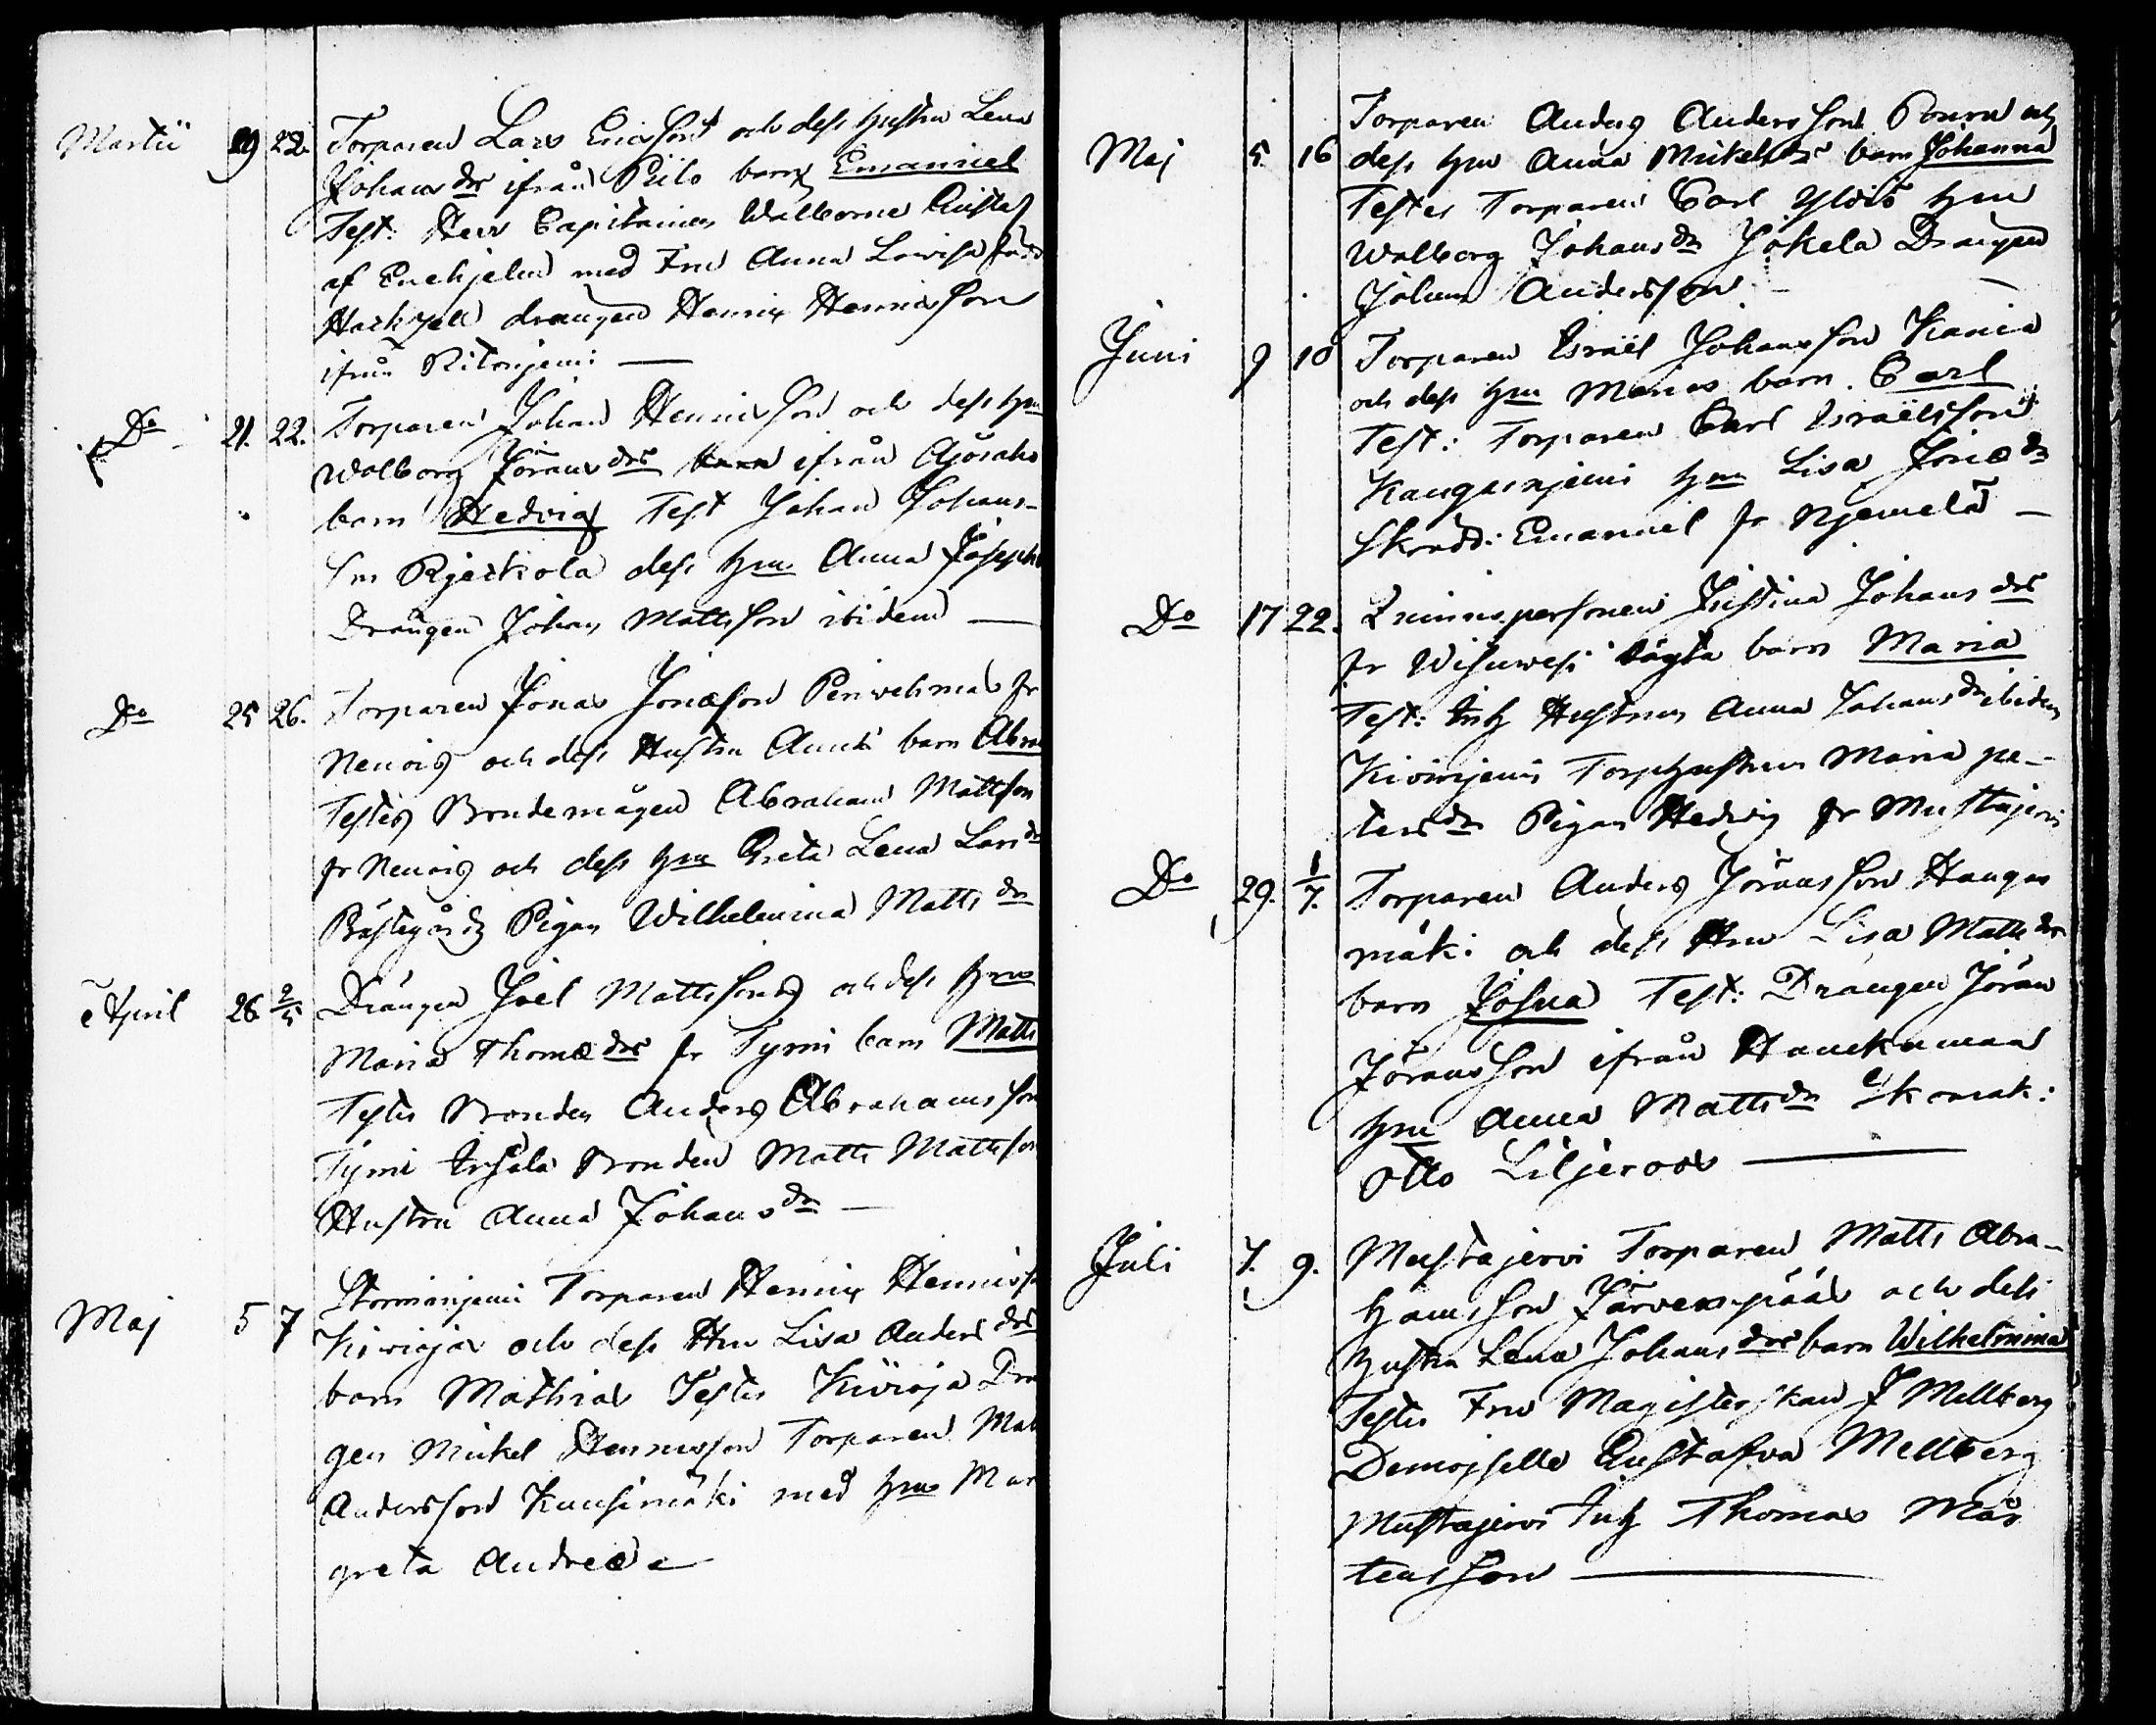 Martii 19 22. Torparen Lars Ericsons och dess hustru Lena
Johans dr ifrån Piilo barn Emanuel
Test: Herr Capitainen Walborne Gustaf
af Enehjelm med Fru Anna Lovisa född
Hackzell drängen Henric Henricsson
ifrån Ritonjemi —
Do 21. 22. Torparen Johan Henricson och dess hru
Walborg Jörans drs barn ifrån Ajösaho
barn Hedvig Test Johan Johans-
son Rjeskola dess hru Anna Joseph
Drängen Johan Mattsson ibidem —
Do 25 26. Torparen Jonas Jonæson Perivehmas fr
Nenois och dess Hustru Anna barn Abra
Testes Bondemågen Abraham Mattson
fr Nenois och dess hru Greta Lena Lars dr
Prästegårds Pigan Wilhelmina Matts dr
April 26 2/5 Drängen Joel Mattssons och dess hru
Maria Thomæ drs fr Tyrni barn Matts
Testes Bonden Anders Abrahamsson
Tyrni Inhsela Bonden Matts Mattsson
Hustru Anna Johans dr —
Maj 5 7 Storminjemi Torparen Henric Henricss
Kivioja och dess Hru Lisa Anders drs
barn Mathias Testes Kivioja Drä
gen Mickel Henricsson Torparen Mat
Andersson Kuusimäki med hru Mar
greta Andreæ
Maj 5. 16 Torparen Anders Andersson Pouru och
dess hru Anna Mickels drs barn Johanna
Testes Torparen Carl Ylitö hru
Walborg Johans dr Jokela Drängen
Johan Andersson —
Juni 9 10 Torparen Israël Johansson Kania
och dess hru Marias barn. Carl
Test: Torparen Carl Israëlsson
Kangasnjemi hru Lisa Jonæ dr
Skrädd: Emanuel fr Njemelä —
Do 17 22. Qvinnspersonen Justina Johans drs
fr Wihuwesi oägta barn Maria
Test: Inh Hustrun Anna Johans dr ibidem
Kivinjemi Torphustrun Maria pe-
ters dr Pigan Hedvig fr Mustajervi
Do 29. 1/7. Torparen Anders Jöransson Hangas
mäki och dess Hru Lisa Matts drs
barn Josua Test: Drängen Jöran
Jöransson ifrån Hanckamaa
hru Anna Matts dr Skomak:
Otto Liljeroos —
Juli 7. 9. Mustajervi Torparen Matts Abra-
hamsson Järvenpääs och dess
hustru Lena Johans drs barn Wilhelmina
Testes Fru Magisterskan J Mellberg
Demoiselle Gustafva Mellberg
Mustajervi Inh Thomas Mår
tensson —